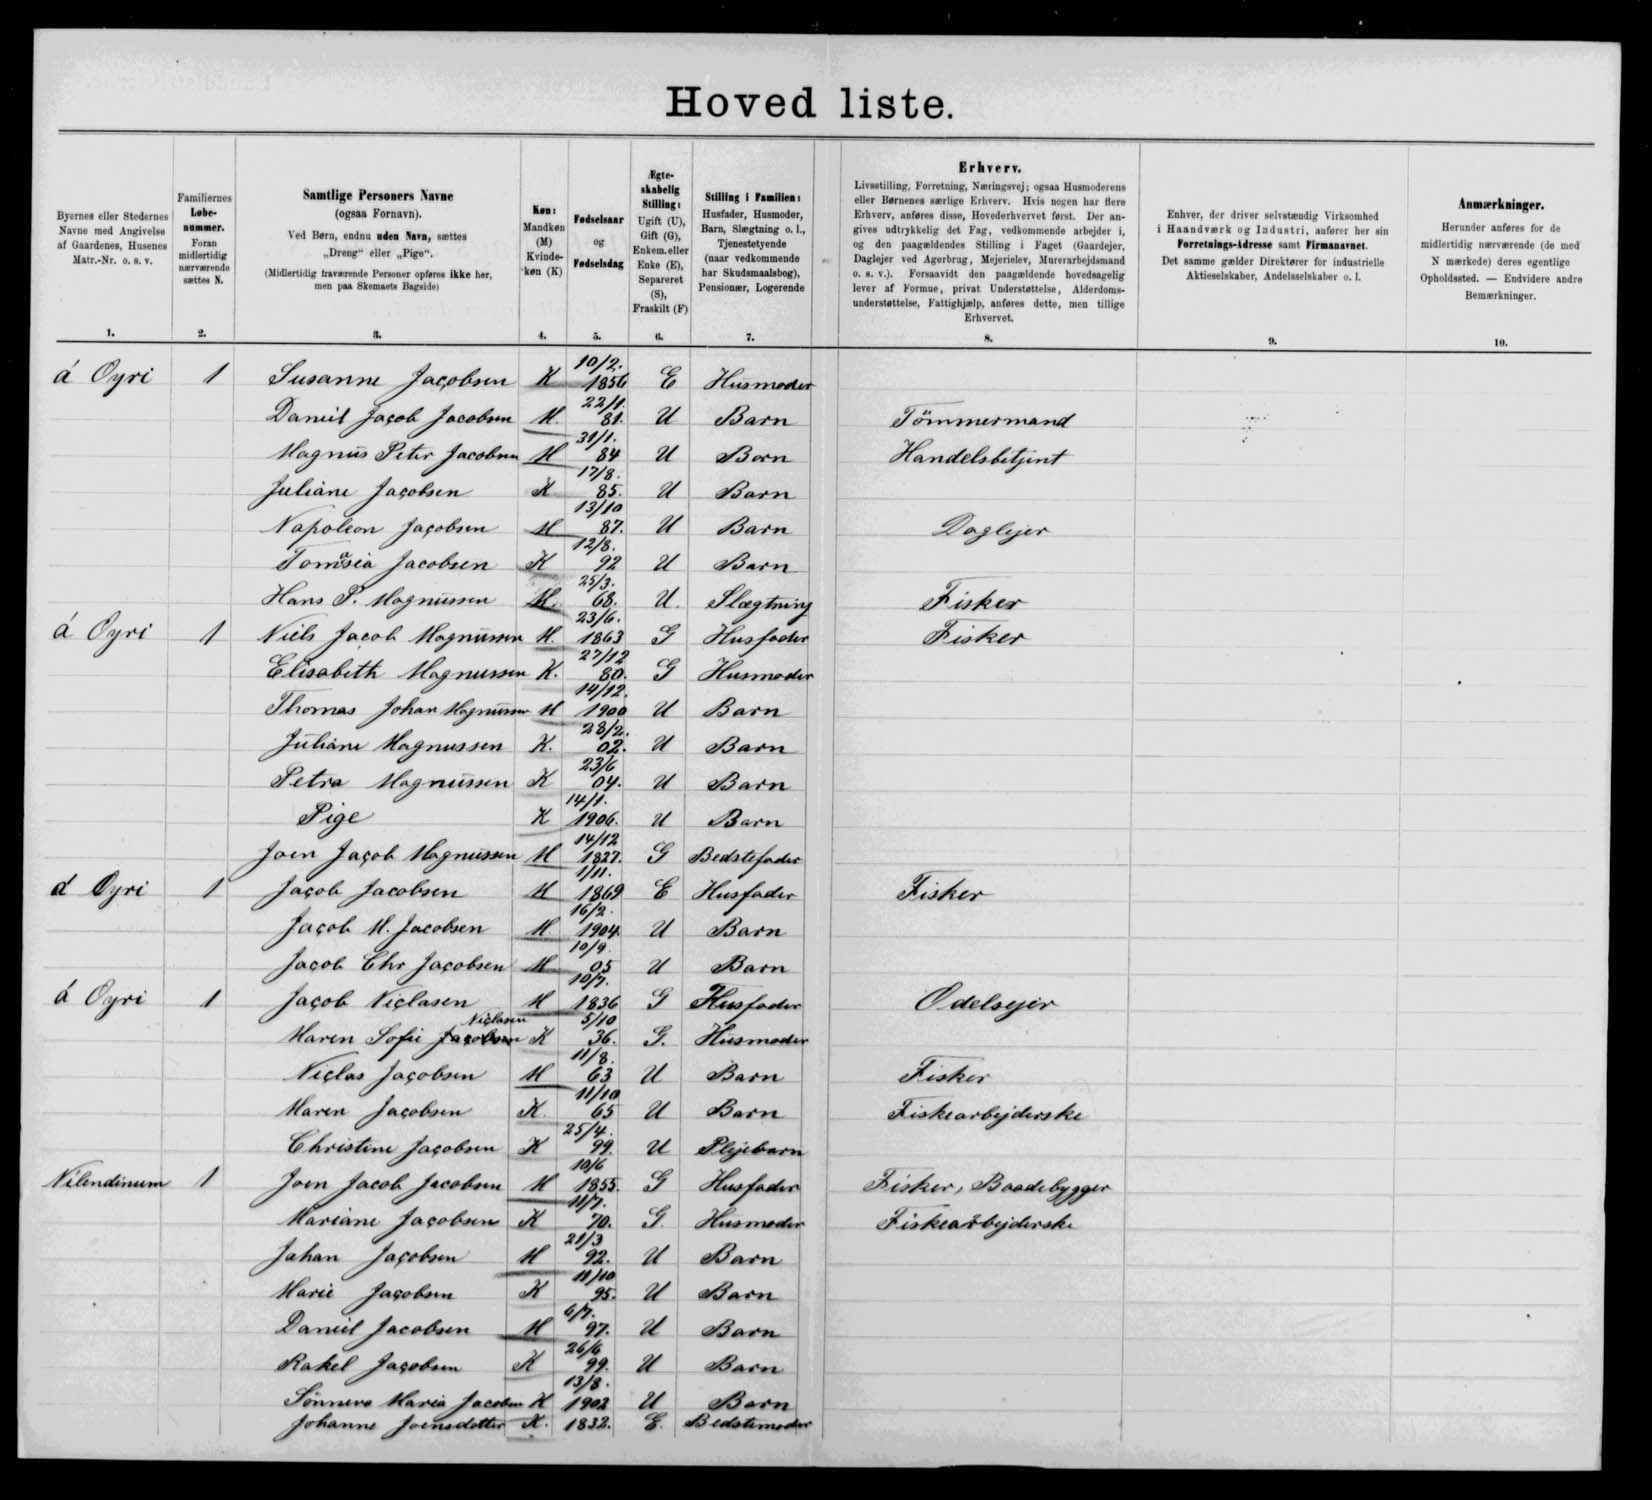 Hoved liste.
Byernes eller Stedernes Navne med Angivelse af Gaardenes, Husenes Matr.-Nr. o. s. v.
Familiernes Løbenummer. Foran midlertidig nærværende sættes N.
Samtlige Personers Navne (ogsaa Fornavn). Ved Børn, endnu uden Navn, sættes „Dreng“ eller „Pige“. (Midlertidig fraværende Personer opføres ikke her, men paa Skemaets Bagside)
Køn: Mandkøn (M) Kvindekøn (K)
Fødselsaar og Fødselsdag
Ægteskabelig Stilling: Ugift (U), Gift (G), Enkem. eller Enke (E), Separeret (S), Fraskilt (F)
Stilling i Familien: Husfader, Husmoder, Barn, Slægtning o. l., Tjenestetyende (naar vedkommende har Skudsmaalsbog), Pensionær, Logerende
Erhverv. Livsstilling, Forretning, Næringsvej; ogsaa Husmoderens eller Børnenes særlige Erhverv. Hvis nogen har flere Erhverv, anføres disse, Hovederhvervet først. Der angives udtrykkelig det Fag, vedkommende arbejder i, og den paagældendes Stilling i Faget (Gaardejer, Daglejer ved Agerbrug, Mejerielev, Murerarbejdsmand o. s. v.). Forsaavidt den paagældende hovedsagelig lever af Formue, privat Understøttelse, Alderdomsunderstøttelse, Fattighjælp, anføres dette, men tillige Erhvervet.
Enhver, der driver selvstændig Virksomhed i Haandværk og Industri, anfører her sin Forretnings-Adresse samt Firmanavnet. Det samme gælder Direktører for industrielle Aktieselskaber, Andelsselskaber o. l.
Anmærkninger. Herunder anføres for de midlertidig nærværende (de med N mærkede) deres egentlige Opholdssted. — Endvidere andre Bemærkninger.
1. 2. 3. 4. 5. 6. 7. 8. 9. 10.
á Oyri 1 Susanne Jacobsen K 10/2. 1856 E Husmoder
Daniel Jacob Jacobsen M. 22/1. 81. U Barn Tömmermand
Magnus Peter Jacobsen M 31/1. 84 U Barn Handelsbetjent
Juliane Jacobsen K 17/8. 85. U Barn
Napoleon Jacobsen M 13/10 87. U Barn Daglejer
Jacobsen K 12/8. 92 U Barn
Hans P. Magnussen M. 25/3. 68. U. Slægtning Fisker
á Oyri 1 Niels Jacob Magnussen M. 23/6. 1863 G Husfader Fisker
Elisabeth Magnussen K. 27/12 80. G Husmoder
Thomas Johan Magnussen M 14/12. 1900 U Barn
Juliane Magnussen K. 28/2. 02. U Barn
Petra Magnussen K 23/6 04. U Barn
Pige K 14/1. 1906. U Barn
Joen Jacob Magnussen M 14/12 1827. G Bedstefader
á Oyri 1 Jacob Jacobsen M 1/11. 1869 E Husfader Fisker
Jacob M. Jacobsen M. 16/2. 1904. U Barn
Jacob Chr Jacobsen M 10/9. 05 U Barn
á Oyri 1 Jacob Niclasen M 10/7. 1836 G Husfader Odelsejer
Maren Sofie Jacobsen Niclasen K 5/10 36. G. Husmoder
Niclas Jacobsen M 11/8. 63 U Barn Fisker
Maren Jacobsen K. 11/10 65 U Barn Fiskearbejderske
Christine Jacobsen K 25/4. 99. U Plejebarn
Nilendinum 1 Joen Jacob Jacobsen M 10/6 1855. G Husfader Fisker, Baadebygger
Mariane Jacobsen K 11/7. 70. G. Husmoder Fiskearbejderske
Johan Jacobsen M 21/3 92. U Barn
Marie Jacobsen K 11/10 95. U Barn
Daniel Jacobsen M 6/7. 97. U Barn
Rakel Jacobsen K 26/6 99. U Barn
Sönneva Maria Jacobsen K 13/8. 1902 U Barn
Johanne Joensdotter K. 1832. E. Bedstemoder